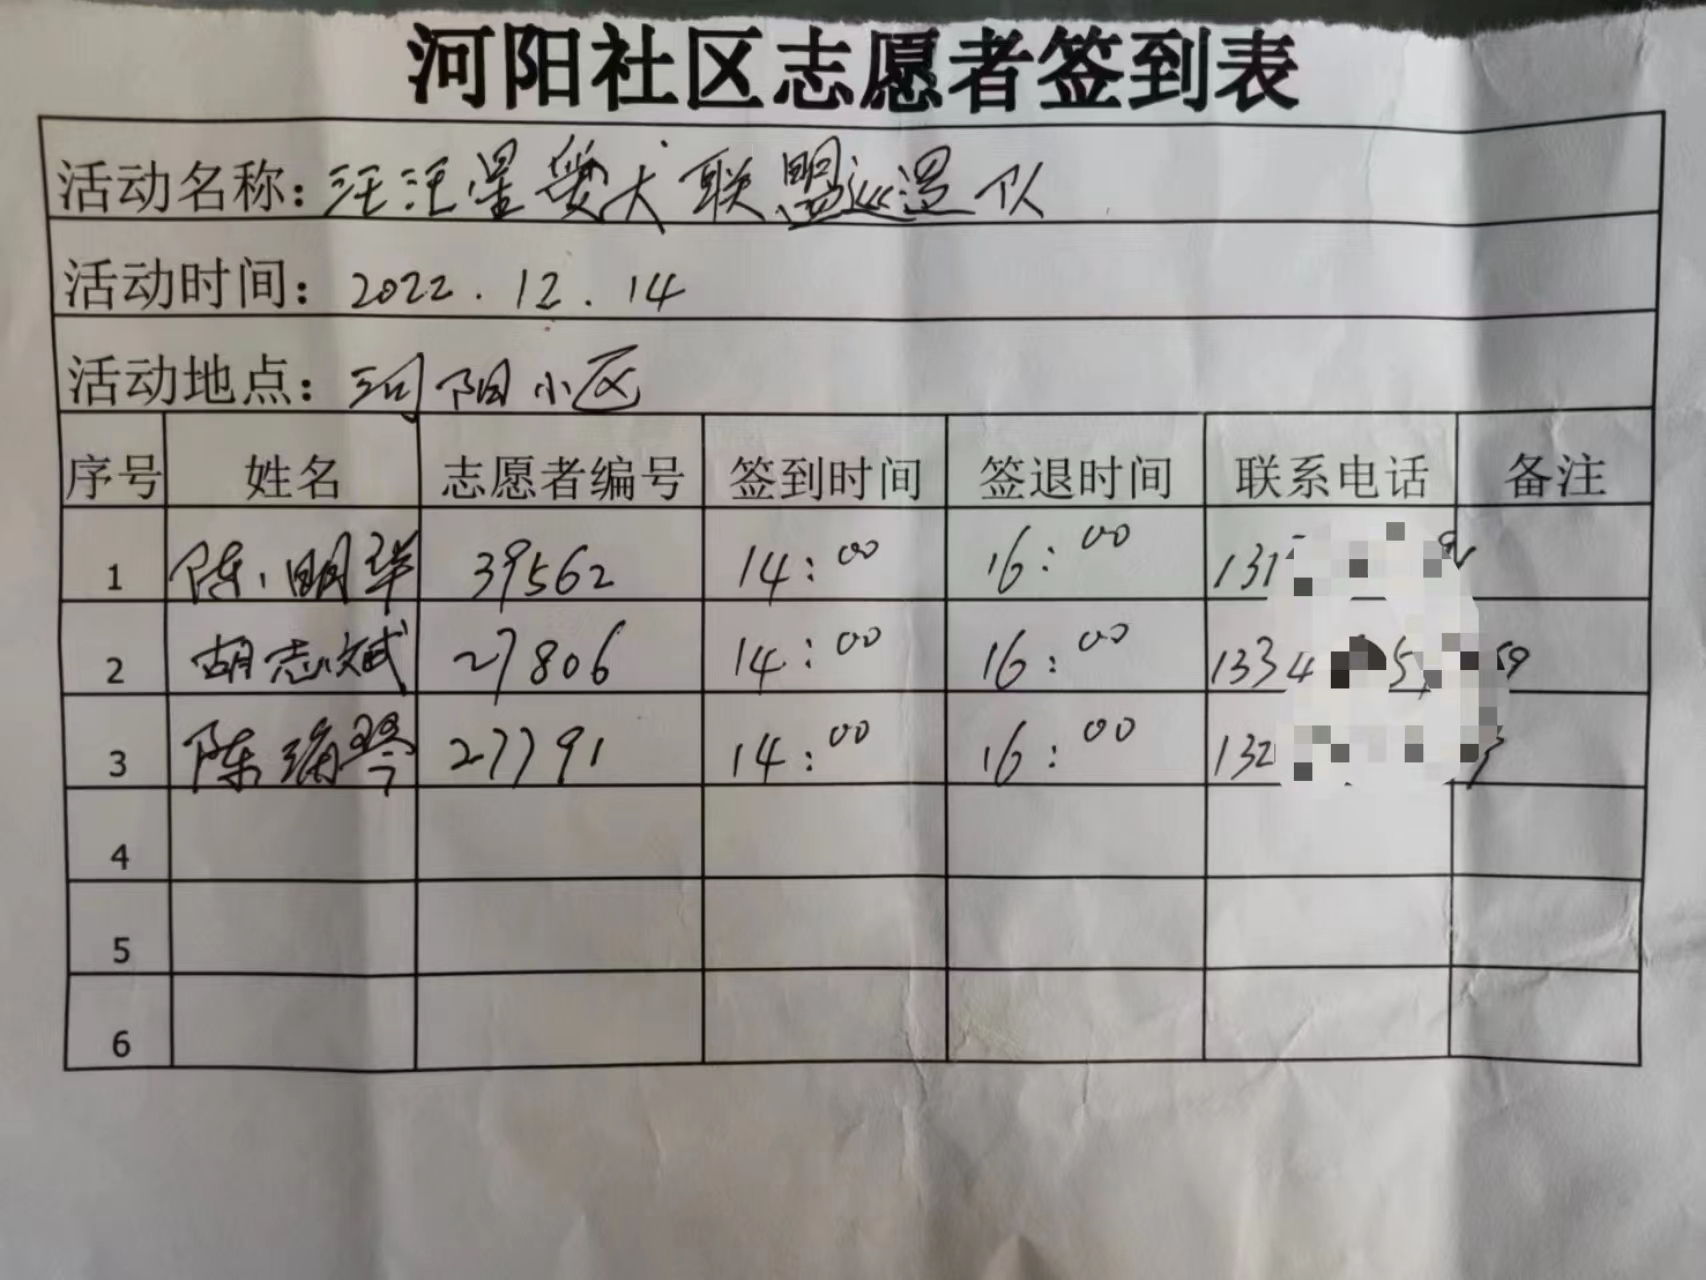 河阳社区志愿者签到表
活动名称：汪汪星爱犬联盟巡逻队
活动时间：2022.12.14
活动地点：河阳小区
序号 姓名 志愿者编号 签到时间 签退时间 联系电话 备注
1 陈明华 39562 14:00 16:00 131
2 胡志斌 27806 14:00 16:00 1334 5 59
3 陈 琴 27791 14:00 16:00 132
4
5
6